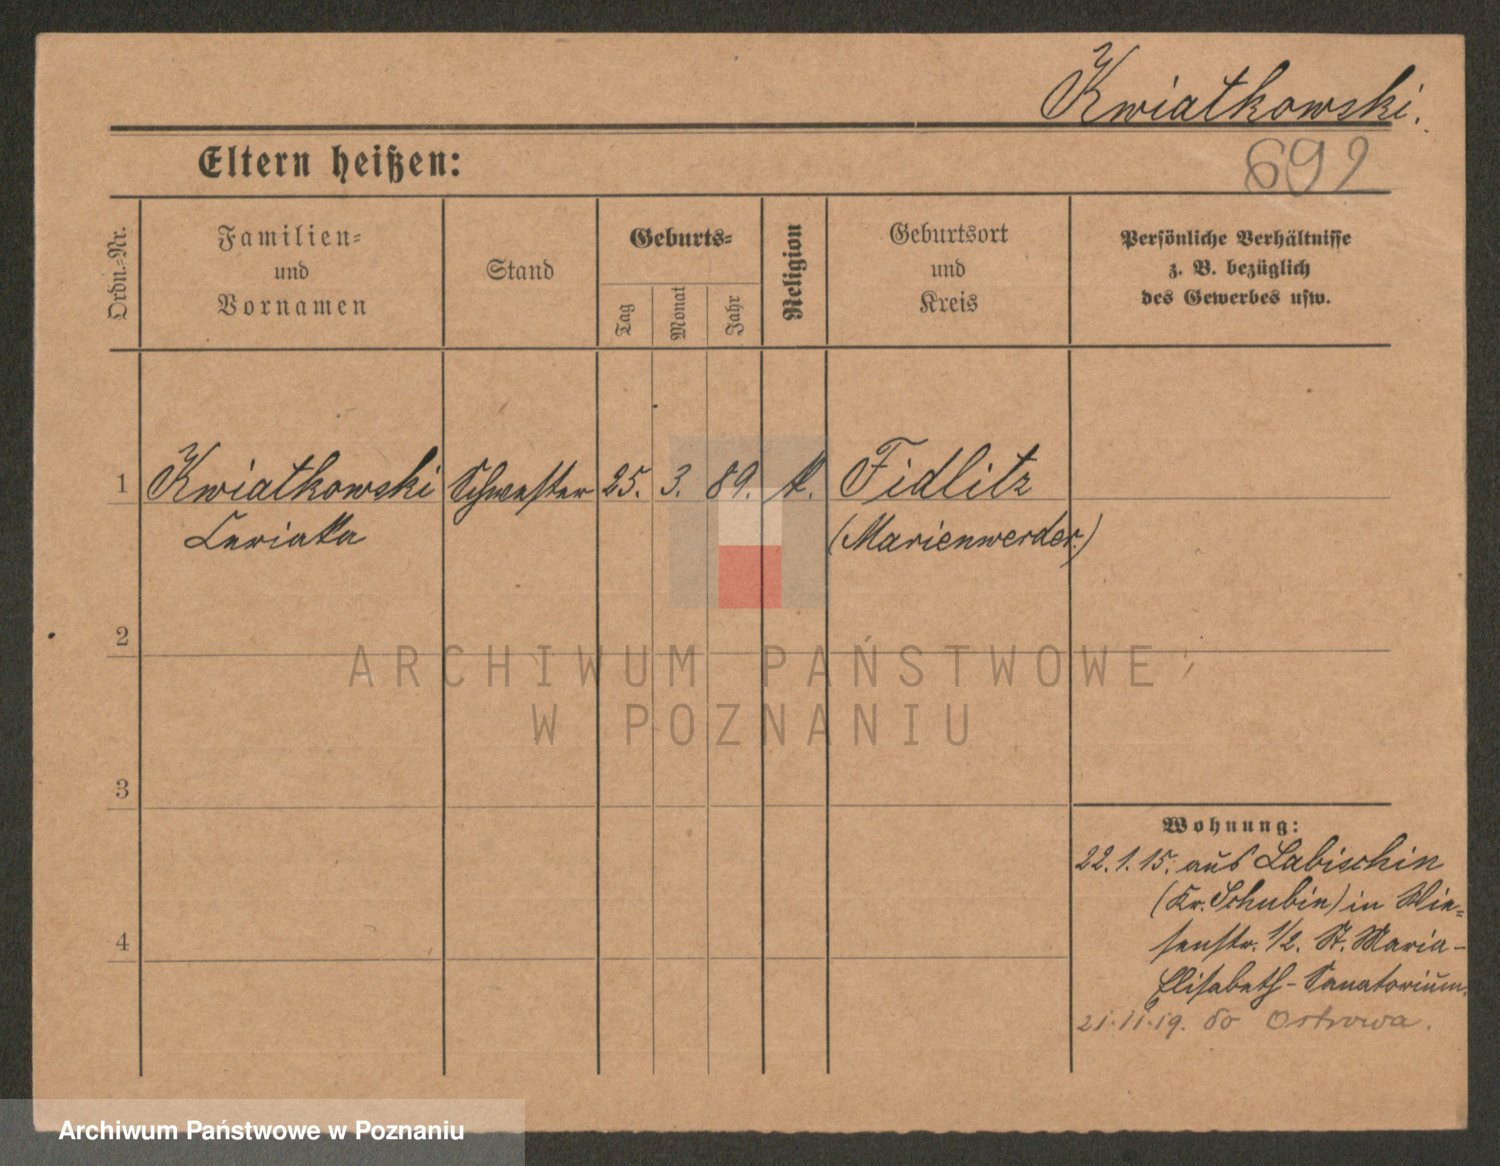 Kwiatkowski.
Eltern heißen:
692
Ordn.-Nr.
Familien-
und
Vornamen
Stand
Geburts-
Tag
Monat
Jahr
Religion
Geburtsort
und
Kreis
Persönliche Verhältnisse
z. B. bezüglich
des Gewerbes usw.
1 Kwiatkowski Schwester 25. 3. 89. k. Fidlitz
(Marienwerder.)
2
ARCHIWUM PAŃSTWOWE
W POZNANIU
3
4
Wohnung:
22.1.15. aus Labischin
(Kr. Schubin) in Wie-
senstr. 1/2. St. Maria-
Elisabeth-Sanatorium.
21.11.19. do Ostrowa.
Archiwum Państwowe w Poznaniu